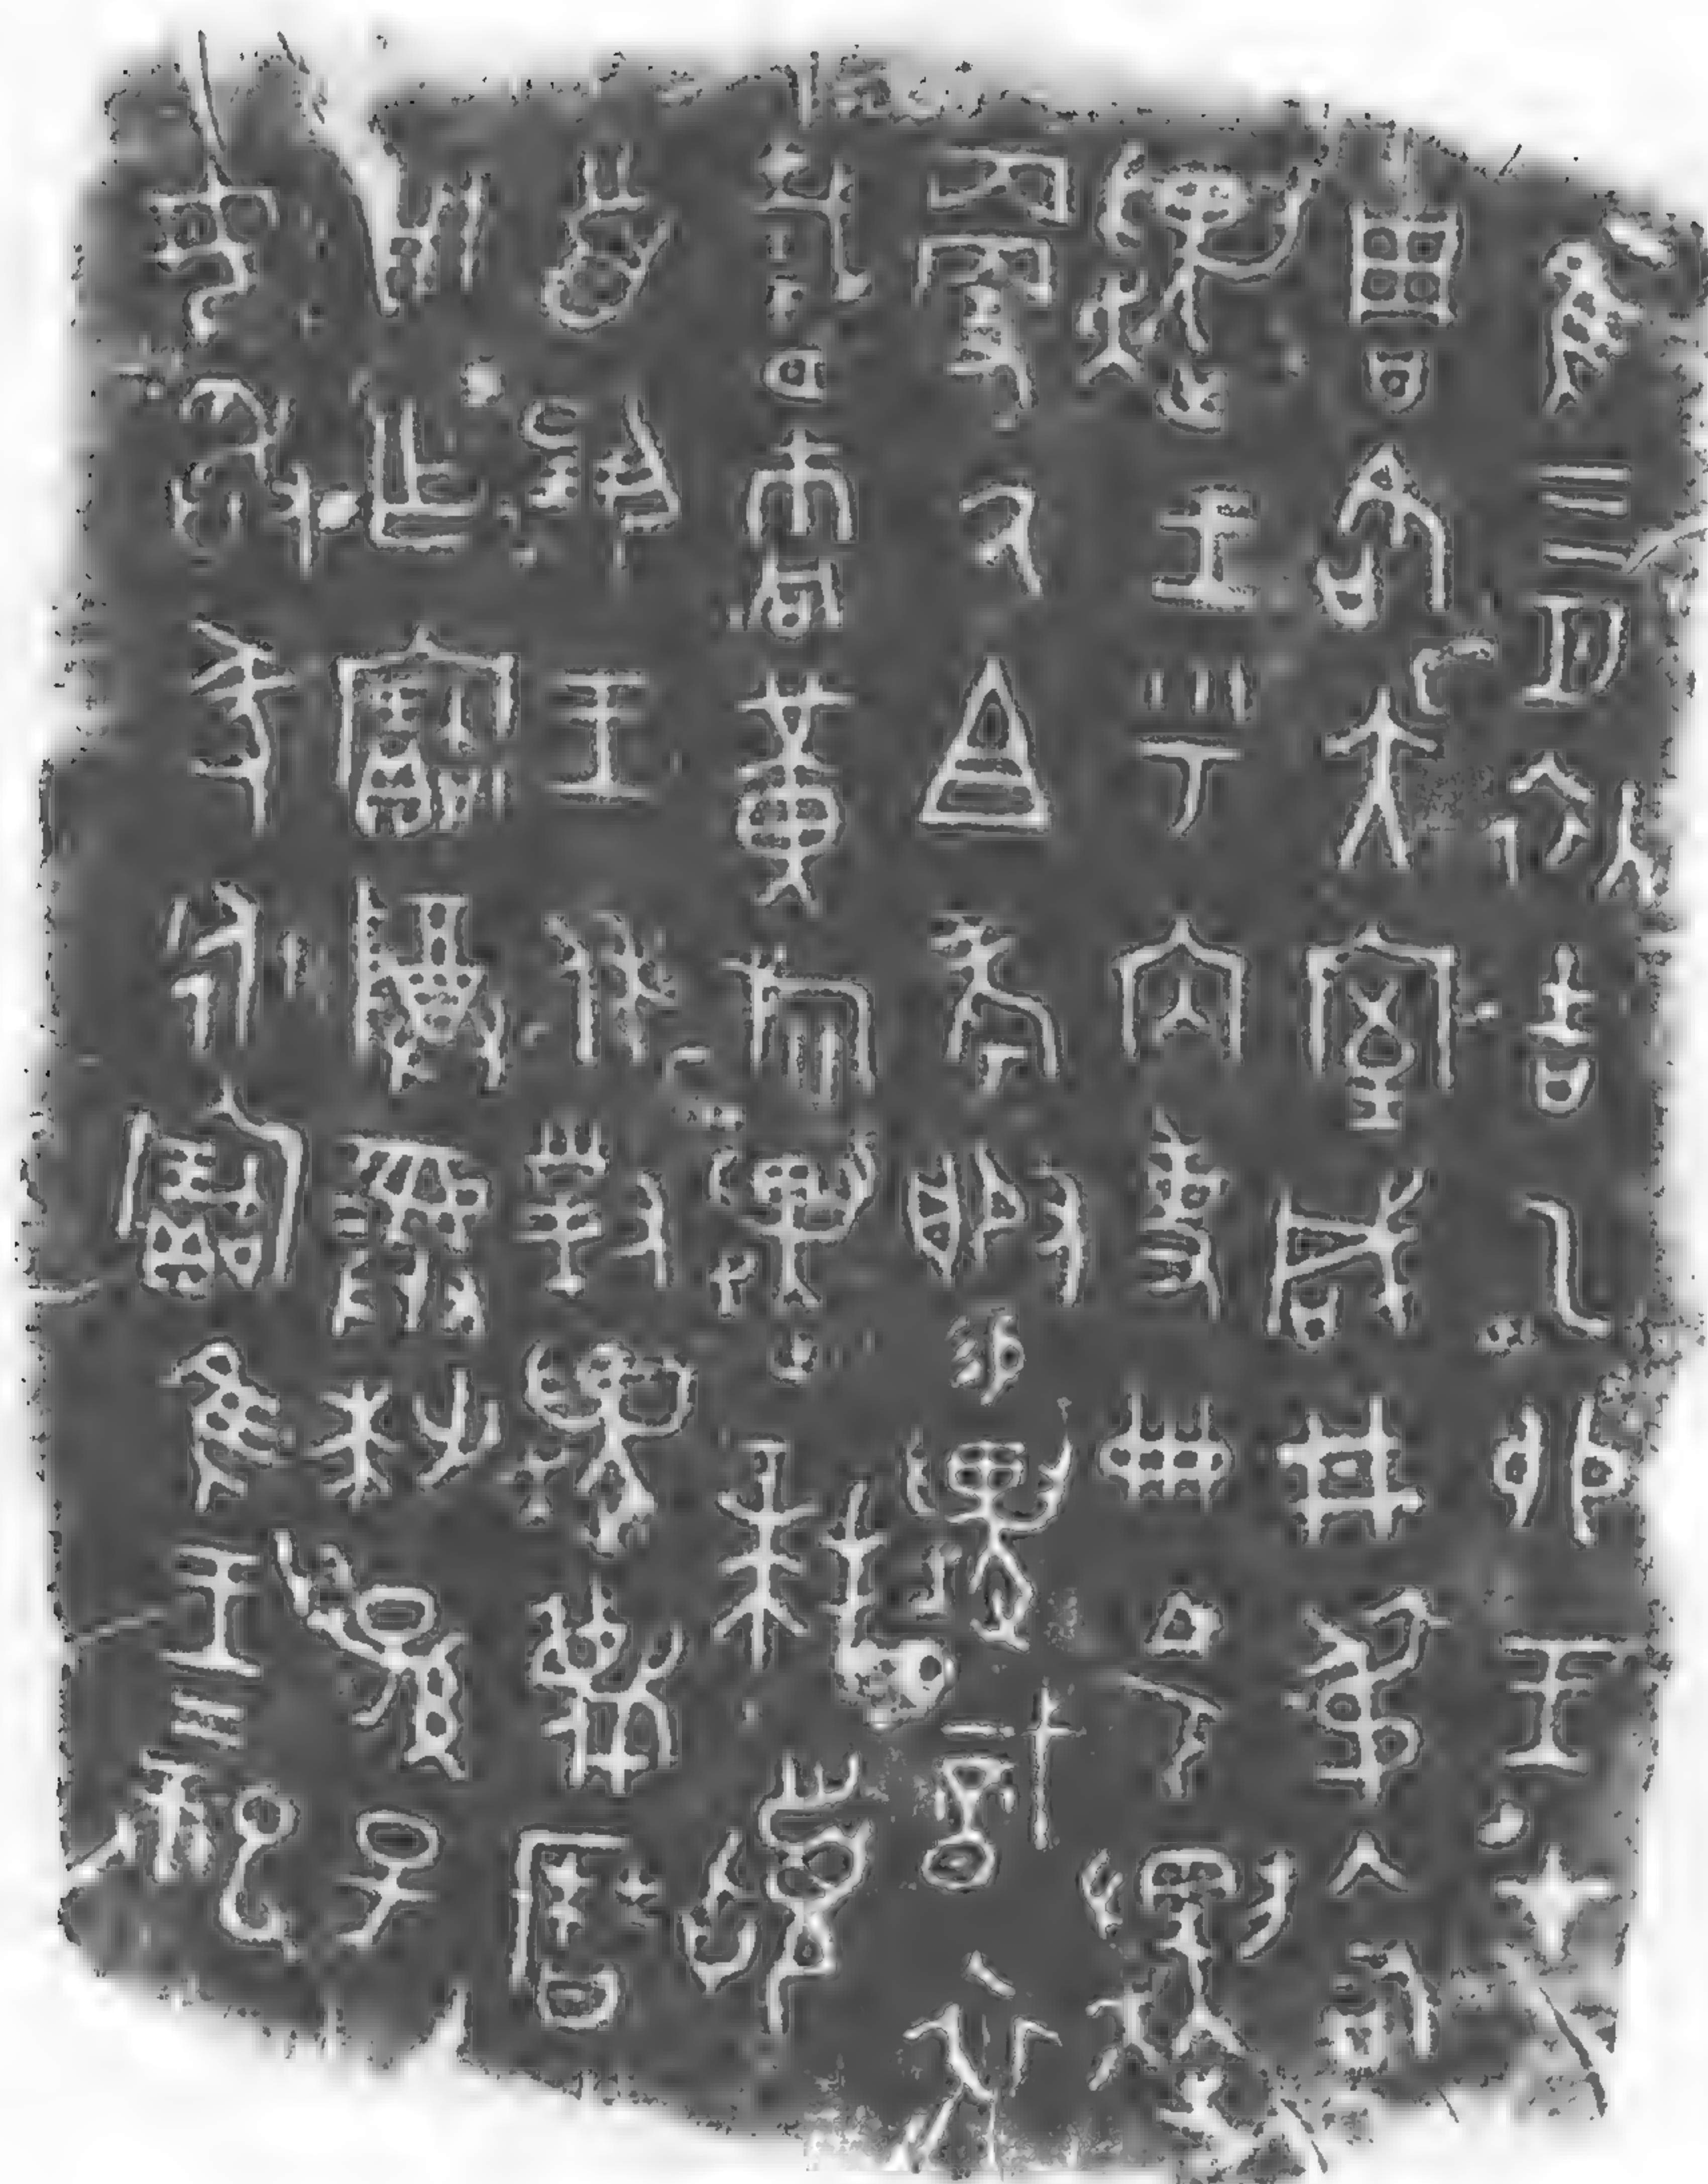 隹三月初吉乙卯王才
周各大室咸井叔入右
趩王乎內史冊令趩
更厥且考服易趩戠衣
載巿冋黃旂趩拜𩒨
首揚王休對趩蔑曆
用乍寶尊彝世孫子
毋敢彖永寶隹王二祀